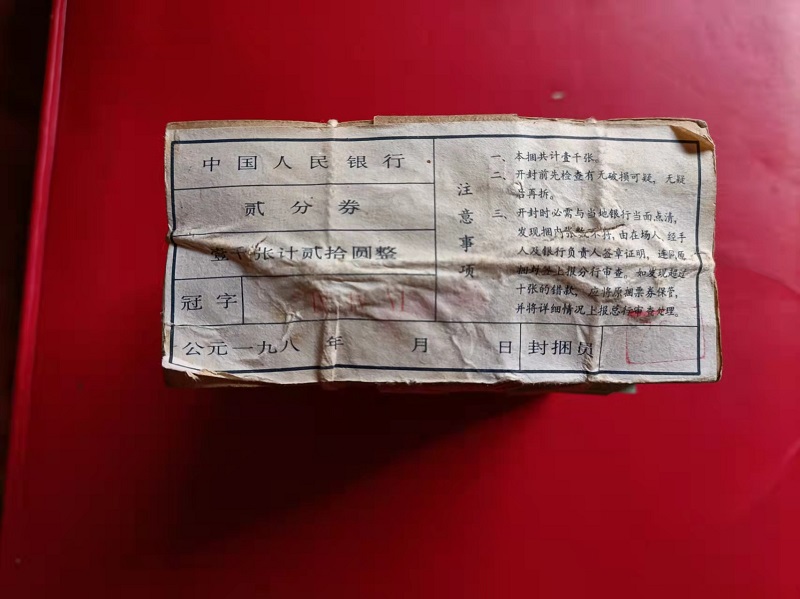 中国人民银行
贰分券
壹千张计贰拾圆整
冠字
公元一九八 年 月 日 封捆员
注意事项
一、本捆共计壹千张。
二、开封前先检查有无破损可疑，无疑
后再拆。
三、开封时必需与当地银行当面点清，
发现捆内张数不符，由在场人、经手
人及银行负责人签章证明，连同原
捆封签上报分行审查。如发现超过
十张的错款，应将原捆票券保管，
并将详细情况上报总行审查处理。